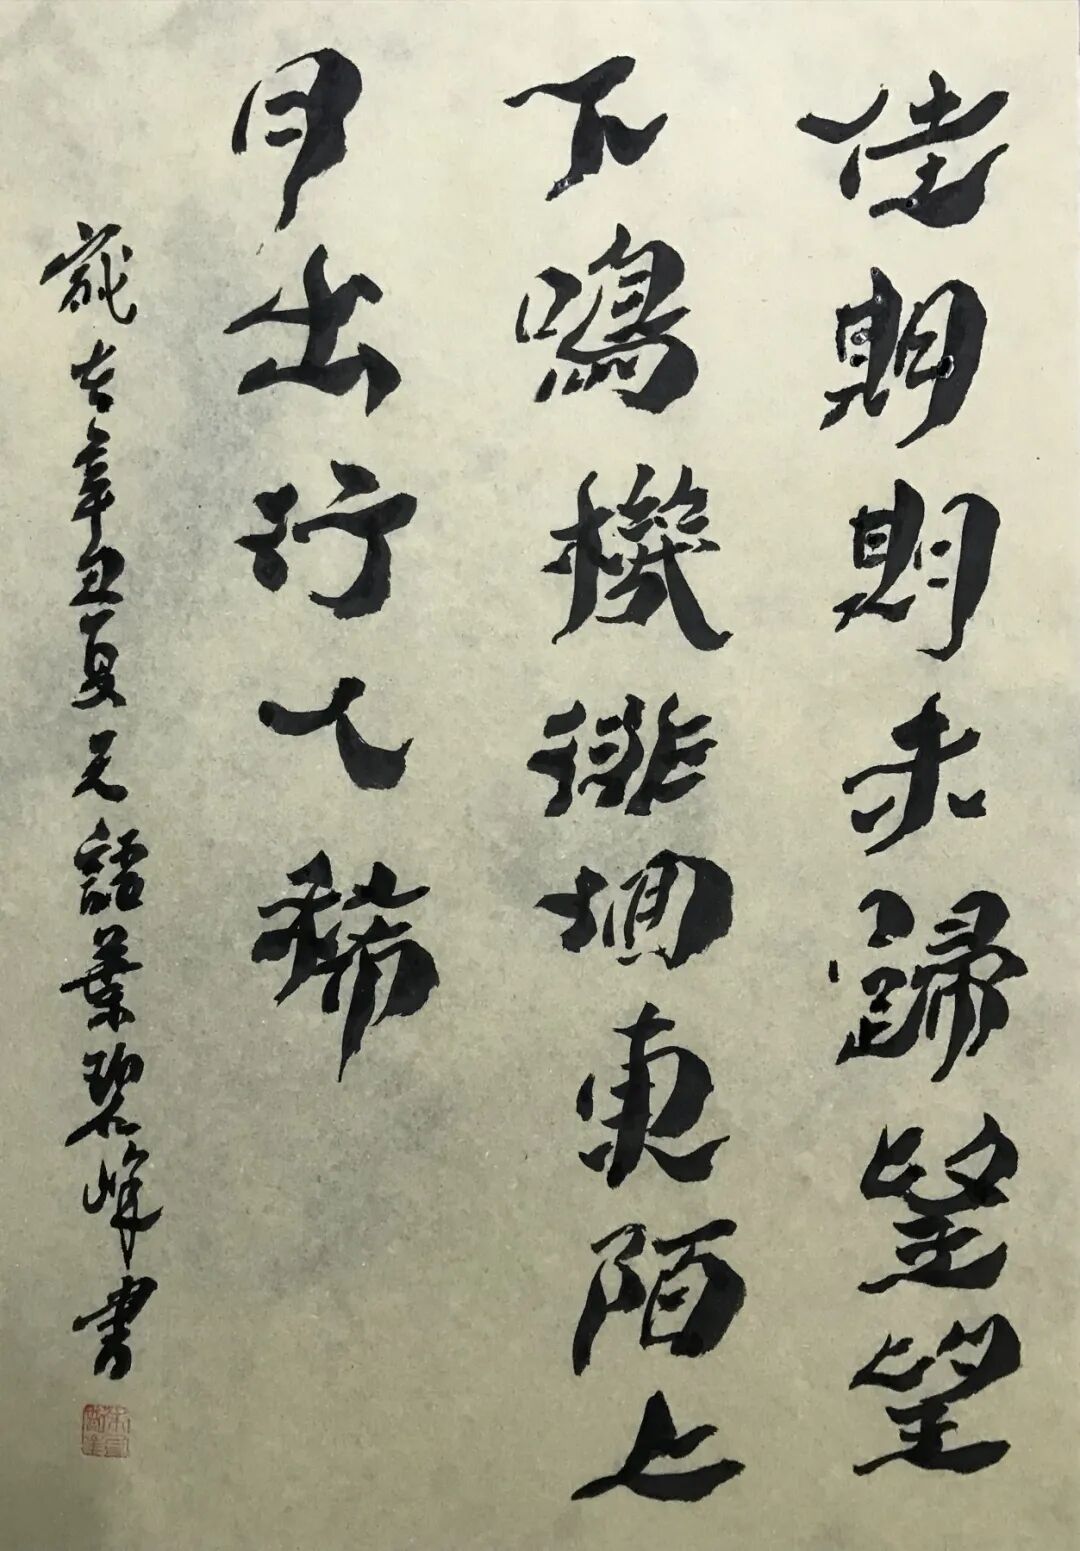 佳期期未歸望望
下鳴機徘徊東陌上
月出行人稀
歲在辛丑夏葉碧峰書